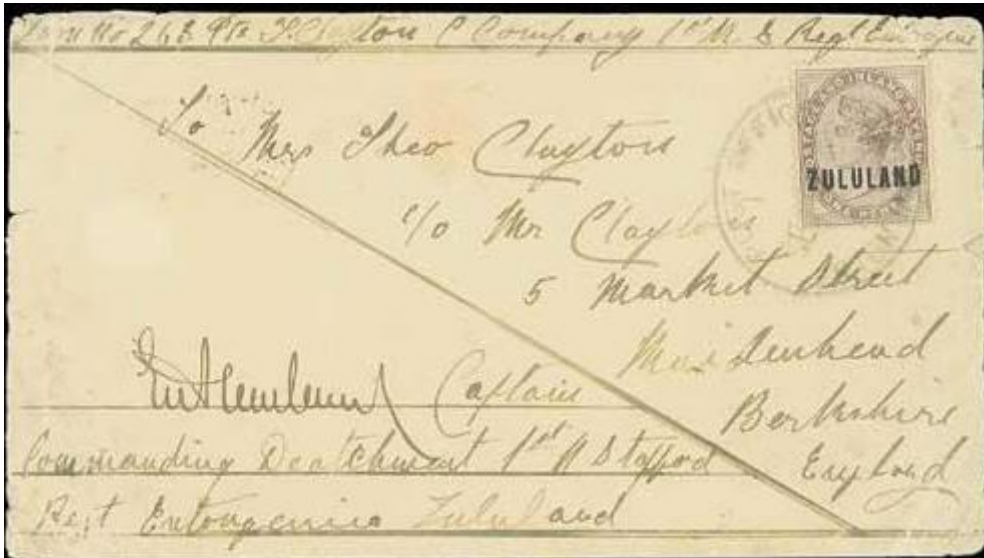 From No 263 Pte T Clayton C Company 1st N S Regt
To
Mrs Theo Clayton
c/o Mr Clayton
5 Market Street
Maidenhead
Berkshire
England
ZULULAND
Captain
Commanding Deatchment 1st N Stafford
Regt Entongenina Zululand